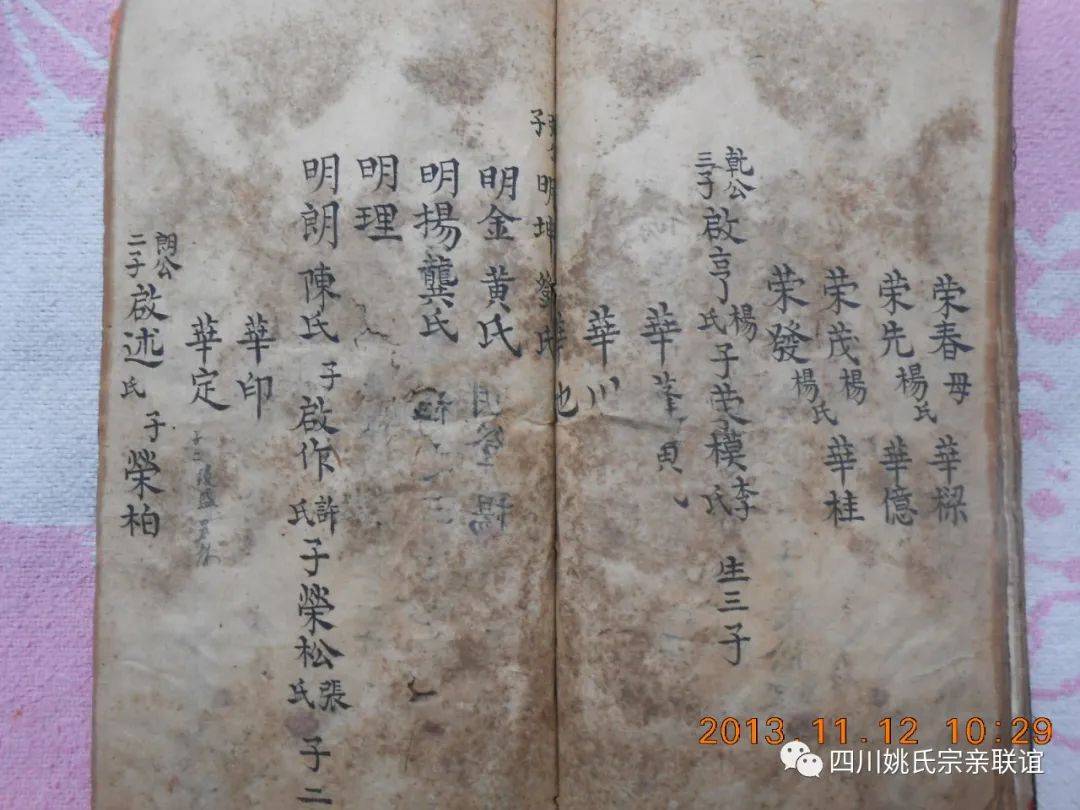 荣春母 華樑
荣先楊氏 華億
荣茂楊氏 華桂
荣發
乾公三子 啟亨楊氏 子荣模李氏 生三子
華蓬
華川
子 明坤 氏
明金 黄氏
明揚 龔氏
明理
明朗 陳氏 子 啟作許氏 子榮松張氏 子二
華印
華定
朗公二子 啟述氏 子 榮柏
2013.11.12 10:29
四川姚氏宗亲联谊